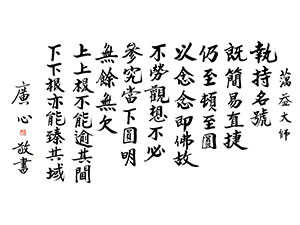 蕅益大師
執持名號
既簡易直捷
仍至頓至圓
以念念即佛故
不勞觀想不必
參究當下圓明
無餘無欠
上上根不能逾其閫
下下根亦能臻其域
廣心
敬書